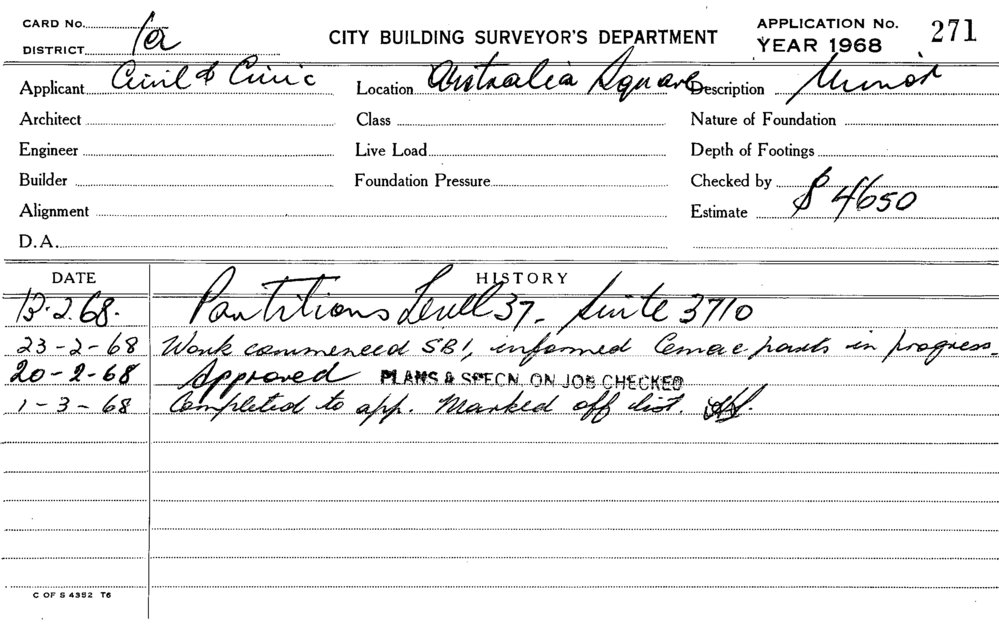 CARD No.
DISTRICT 1a
CITY BUILDING SURVEYOR'S DEPARTMENT
APPLICATION No. 271
YEAR 1968
Applicant Civil & Civic Location Australia Square Description Minor
Architect Class Nature of Foundation
Engineer Live Load Depth of Footings
Builder Foundation Pressure Checked by
Alignment Estimate $4650
D.A.
DATE HISTORY
13.2.68. Partitions Level 37 - Suite 3710
23-2-68 Work commenced SB1, informed Cemac parts in progress.
20-2-68 Approved PLANS & SPECN. ON JOB CHECKED
1-3-68 Completed to app. Marked off dist.
C OF S 4352 T6